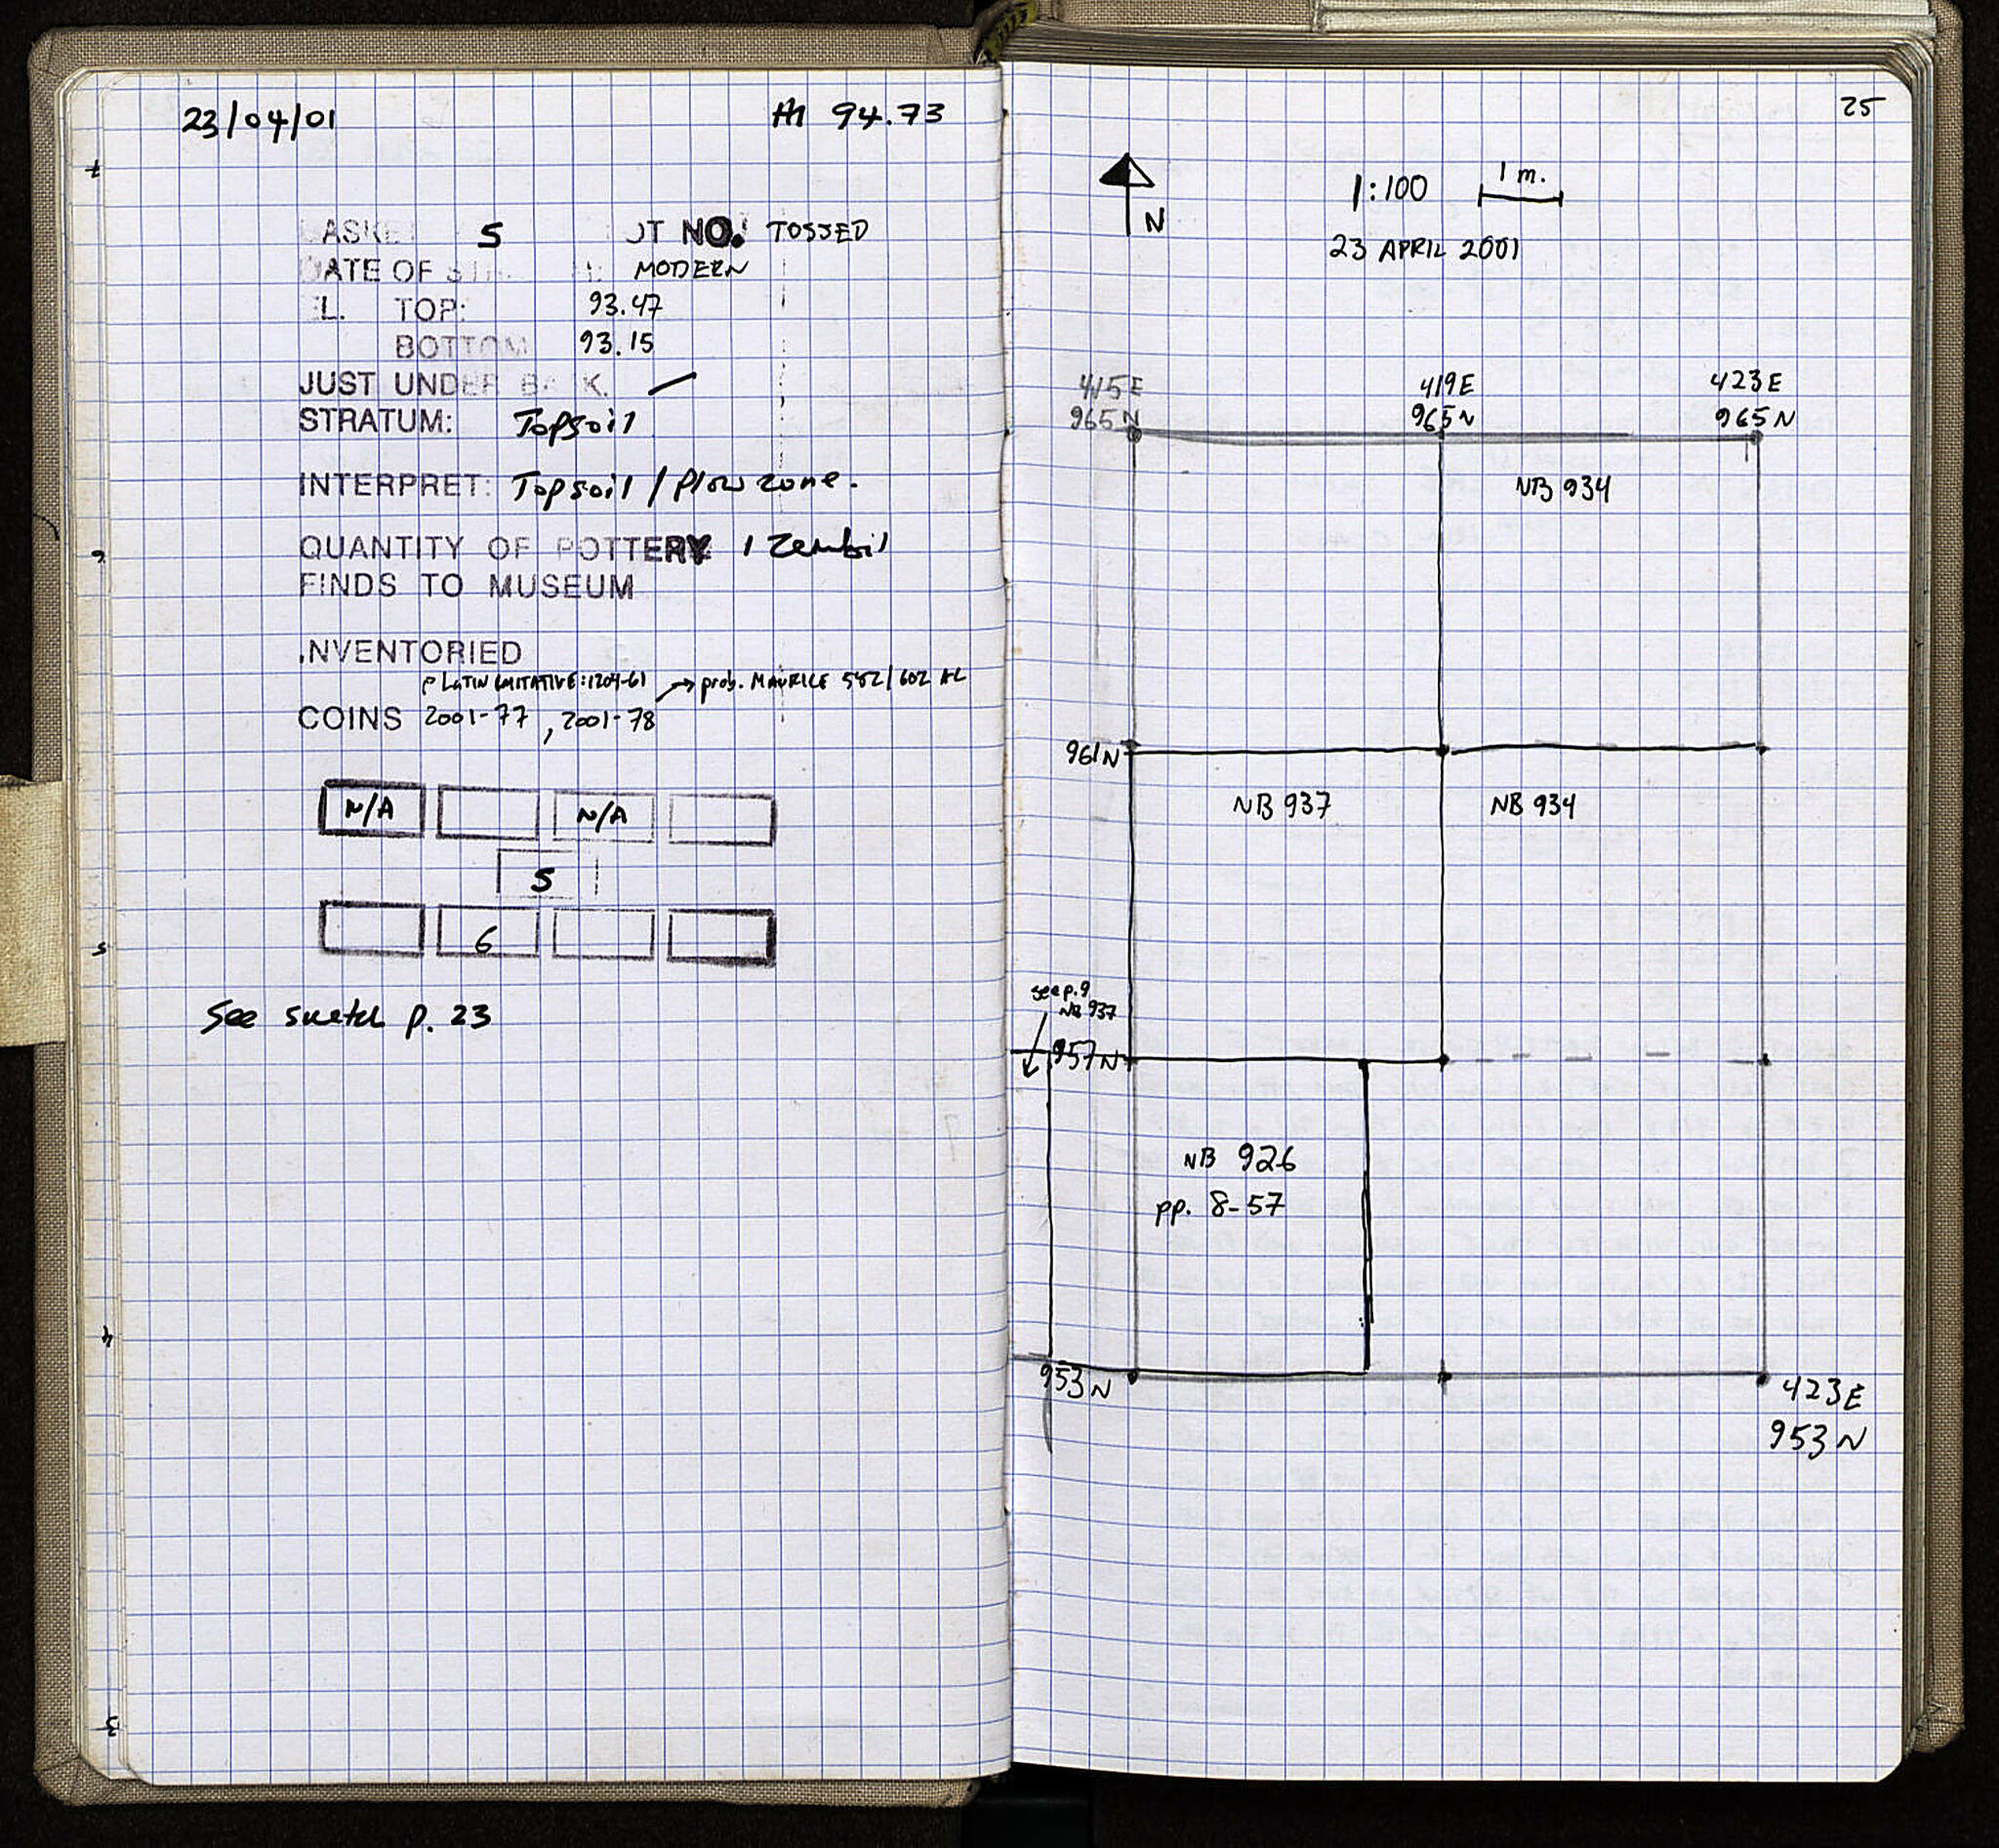 23/04/01
HI 94.73
BASKET 5 LOT NO. TOSSED
DATE OF MODERN
EL. TOP: 93.47
BOTTOM 93.15
JUST UNDER BASK.
STRATUM: Topsoil
INTERPRET: Topsoil / Plowzone.
QUANTITY OF POTTERY 1 Zembil
FINDS TO MUSEUM
INVENTORIED
LATIN IMITATIVE: 1204-61 → prob. MAURICE 582/602 AC
COINS 2001-77, 2001-78
N/A N/A
5
6
See sketch p. 23
7
6
5
4
3
25
N
1:100 1 m.
23 APRIL 2001
415E 419E 423E
965N 965N 965N
NB 934
961N
NB 937 NB 934
see p. 9
NB 937
957N
NB 926
pp. 8-57
953N
423E
953N